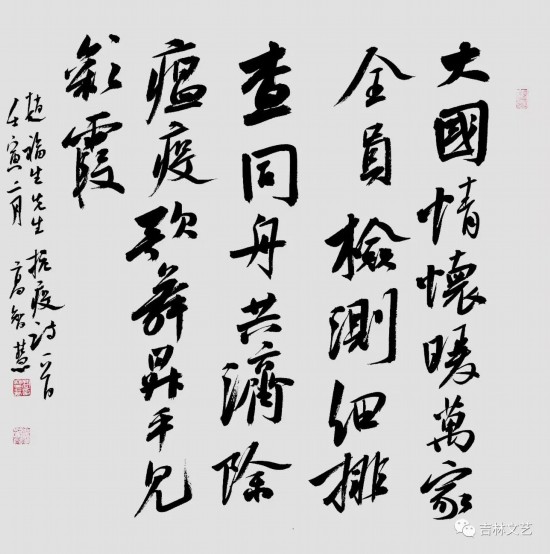 大國情懷暖萬家
全員檢測細排
查同舟共濟除
瘟疫歌舞昇平見
彩霞
趙福生先生抗疫詩一首
壬寅二月 高智慧
吉林文艺